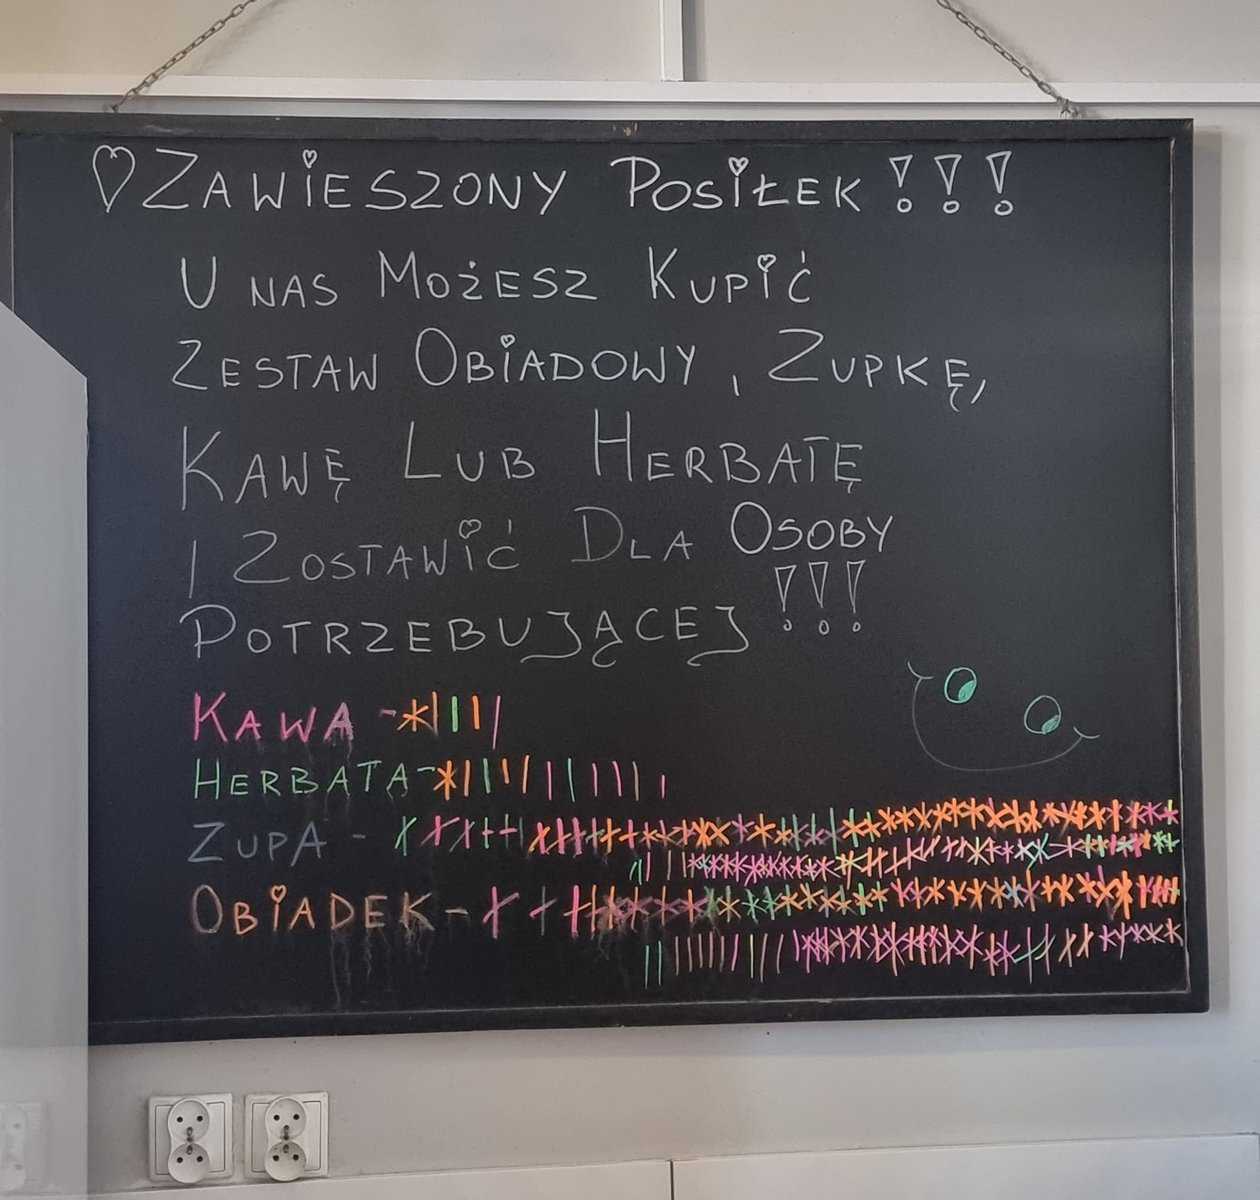 ZAWIESZONY POSIŁEK !!!
U NAS MOŻESZ KUPIĆ
ZESTAW OBIADOWY, ZUPKĘ,
KAWĘ LUB HERBATĘ
I ZOSTAWIĆ DLA OSOBY
POTRZEBUJĄCEJ !!!
KAWA -
HERBATA -
ZUPA -
OBIADEK -